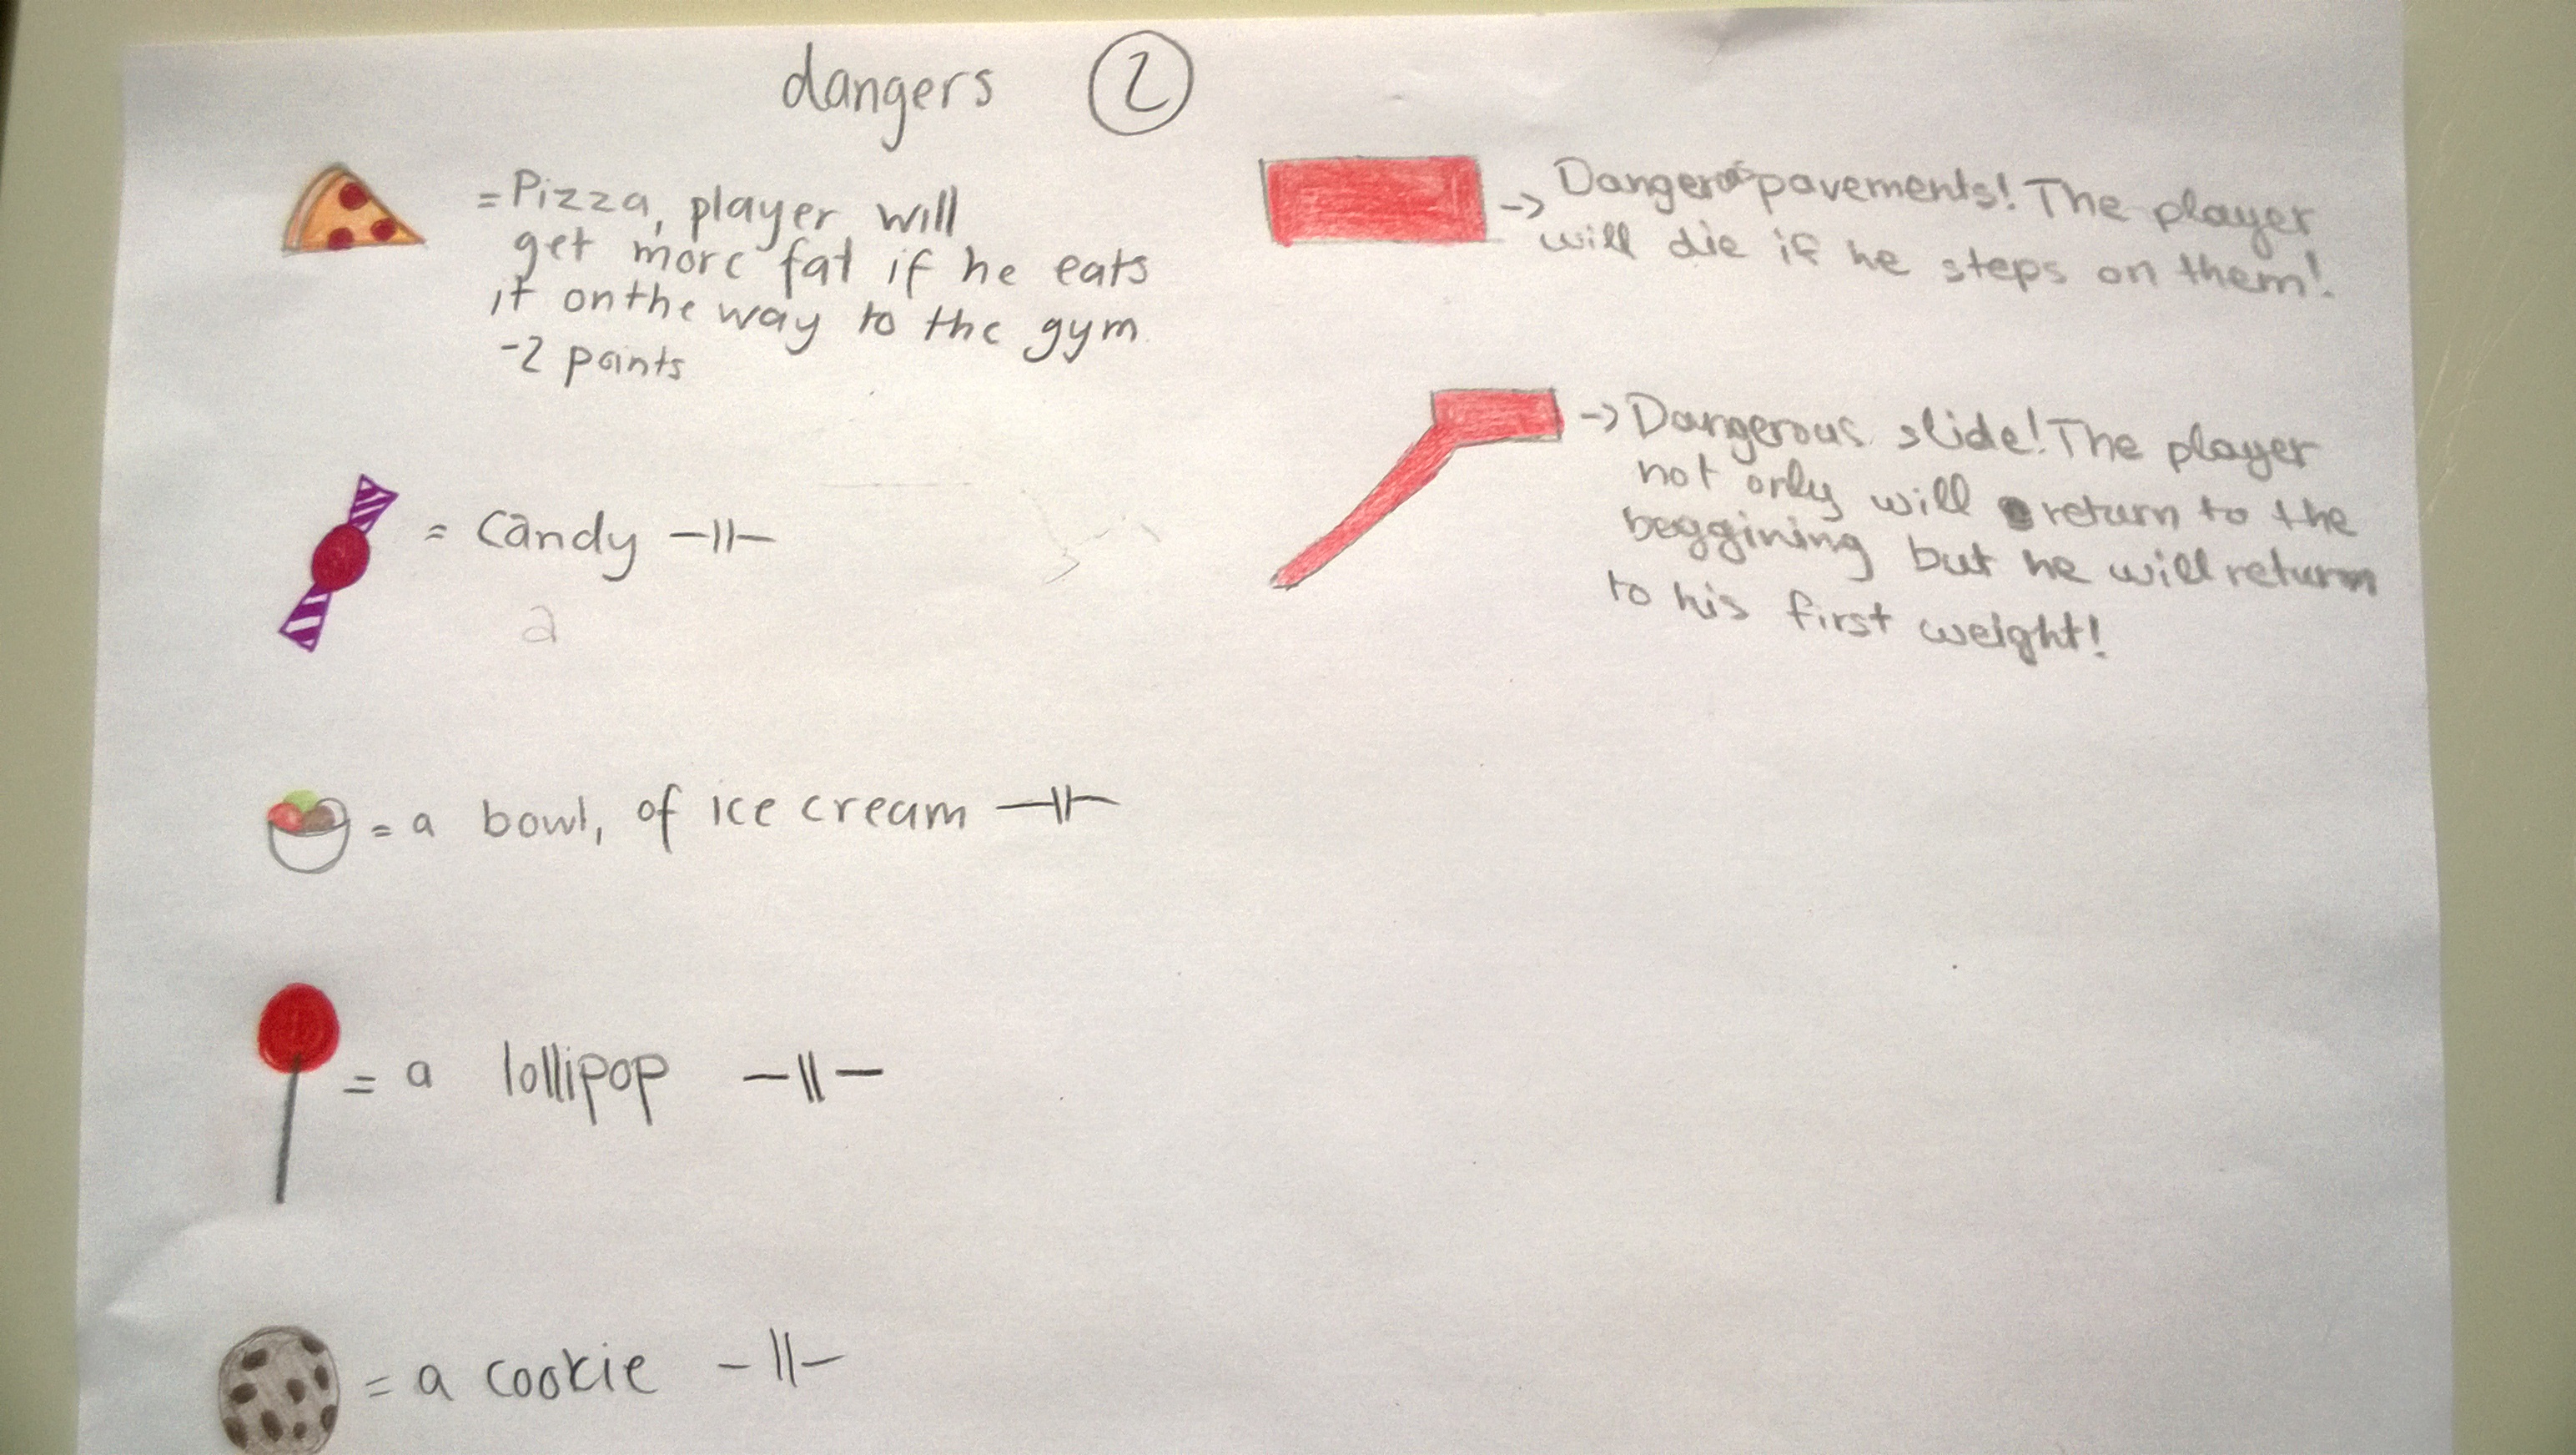 dangers 2
= Pizza, player will
get more fat if he eats
it on the way to the gym
-2 points
= candy -||-
a
= a bowl, of ice cream -||-
= a lollipop -||-
= a cookie -||-
-> Dangerous pavements! The player
will die if he steps on them!
-> Dangerous slide! The player
not only will return to the
beggining but he will return
to his first weight!